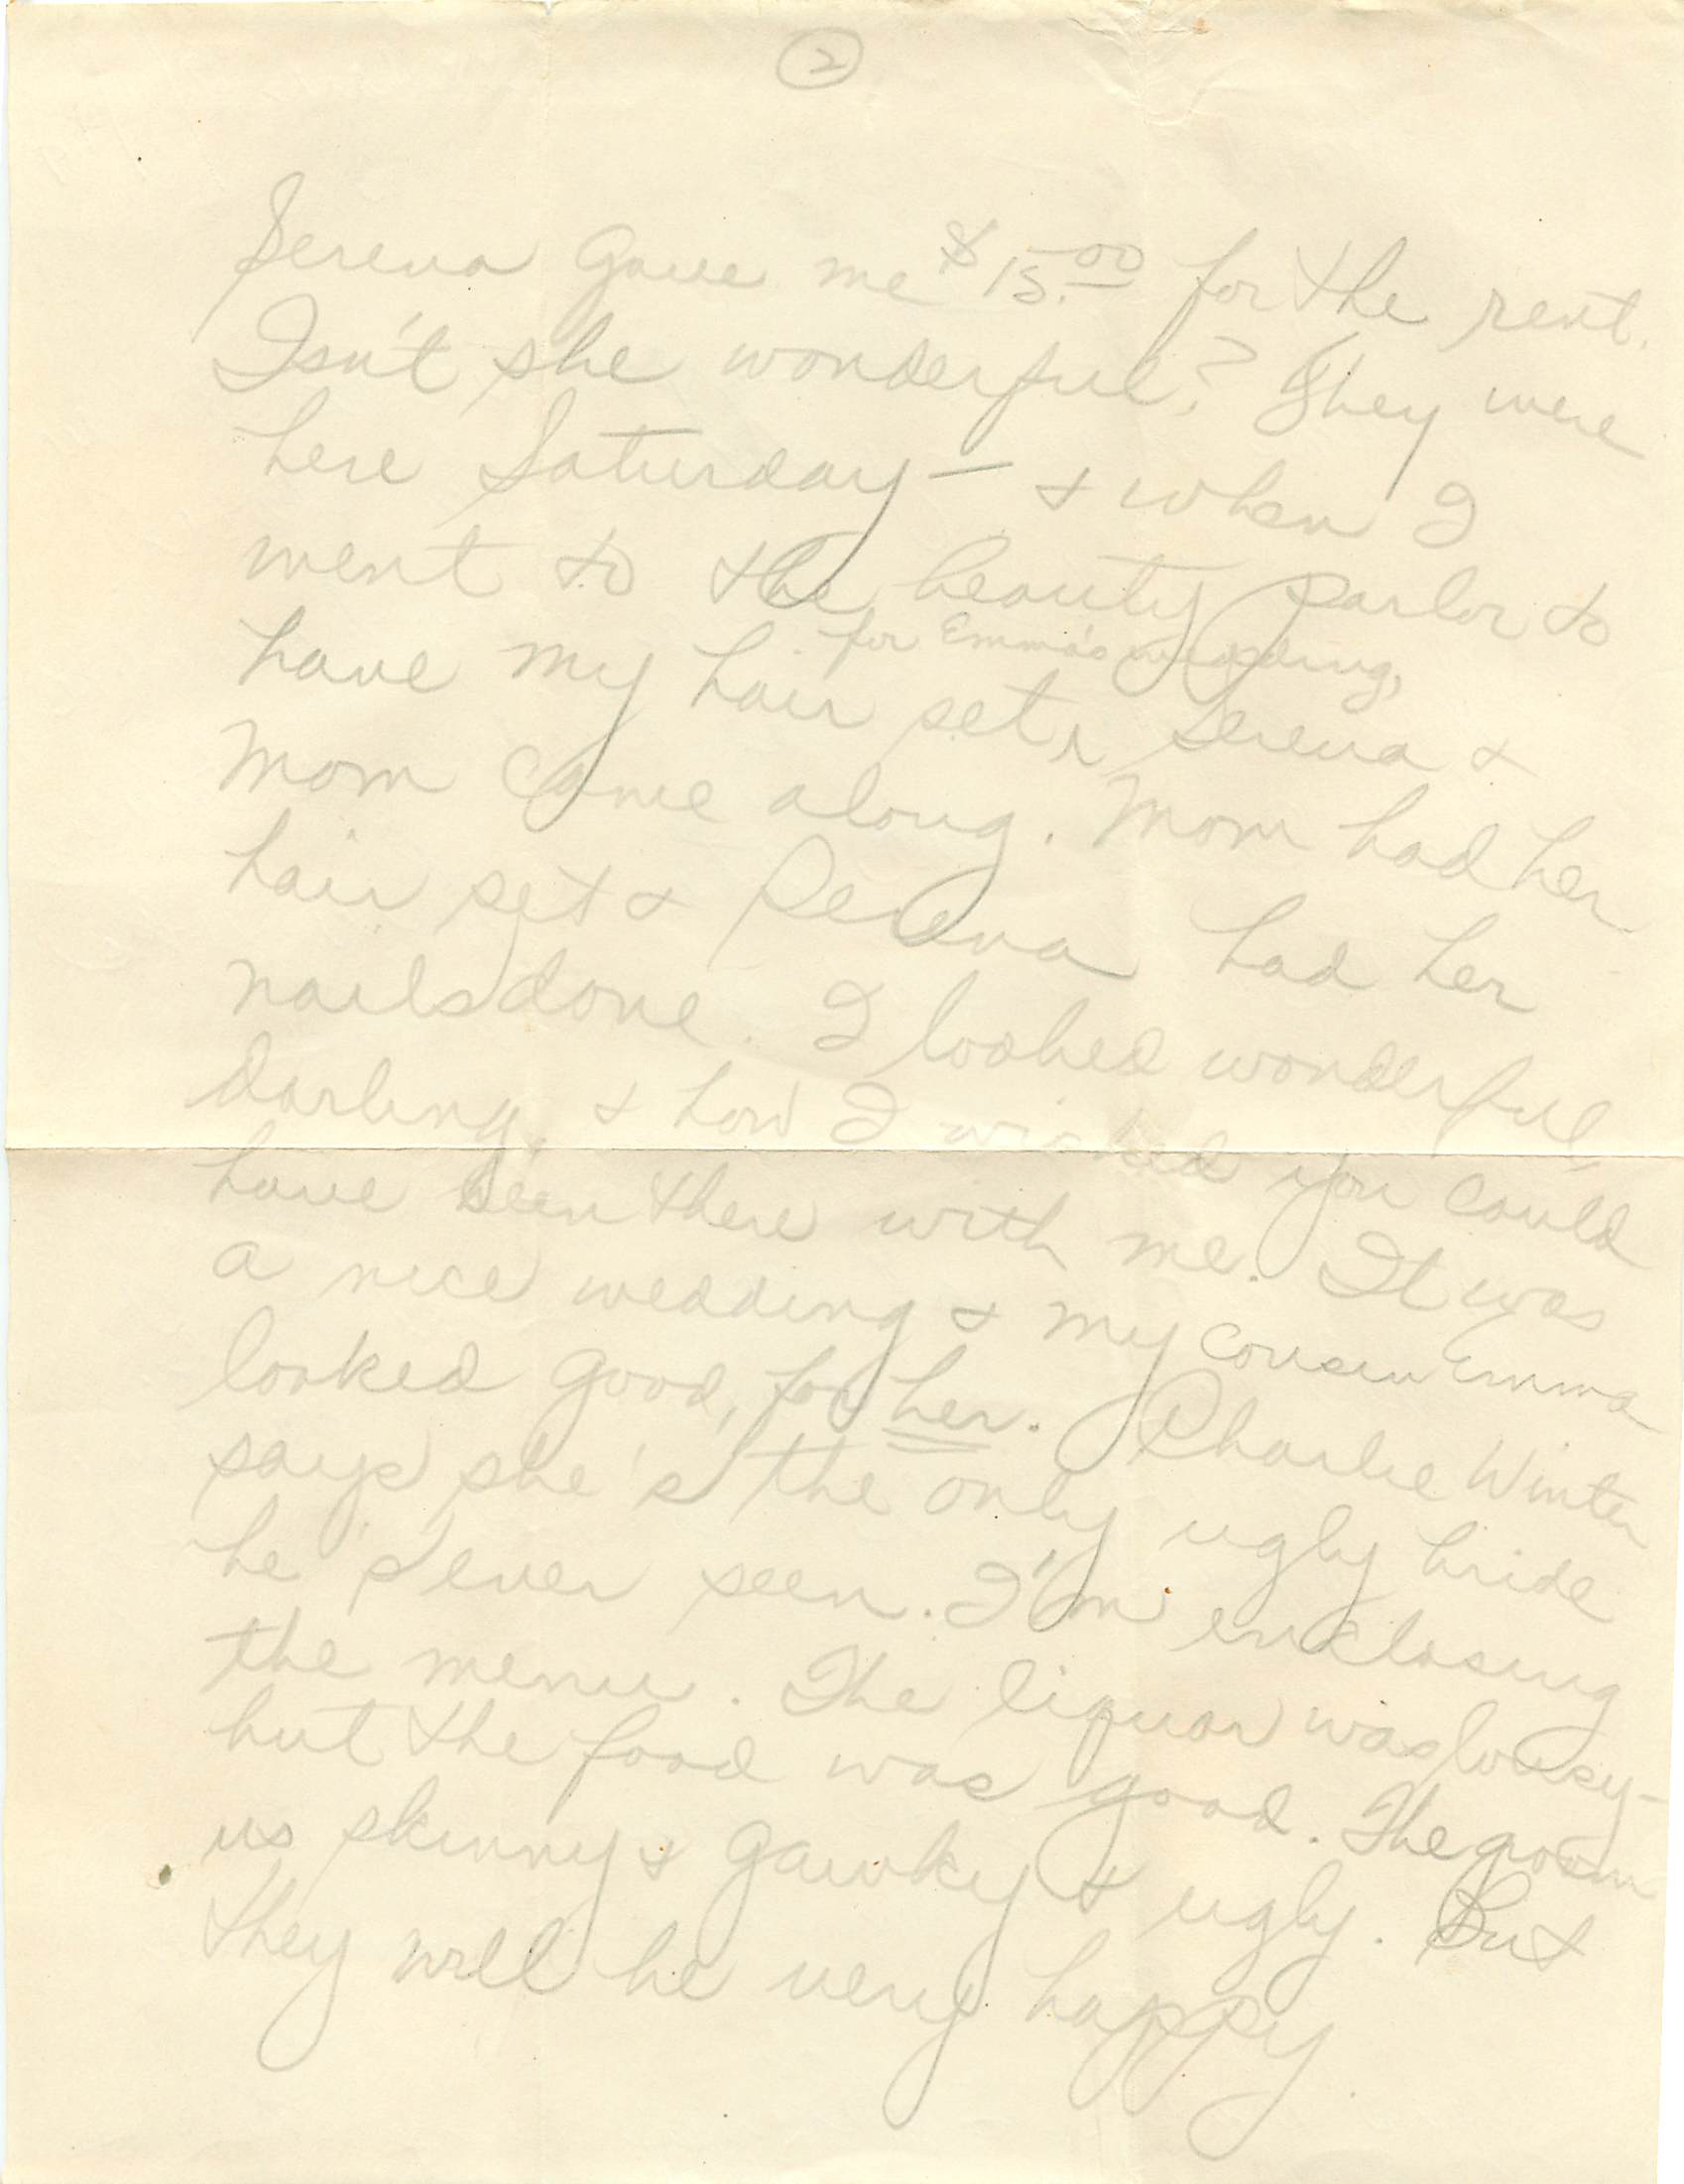 2
Serena gave me $15.00 for the rent.
Isn't she wonderful? They were
here Saturday — & when I
went to the beauty parlor to
for Emma's wedding,
have my hair set, Serena &
Mom came along. Mom had her
hair set & Serena had her
nails done. I looked wonderful,
darling, & how I wished you could
have been there with me. It was
a nice wedding & my cousin Emma
looked good, for her. Charlie Winter
says she's the only ugly bride
he's ever seen. I'm enclosing
the menu. The liquor was lousy —
but the food was good. The groom
us skinny & gawky & ugly. But
they will be very happy.